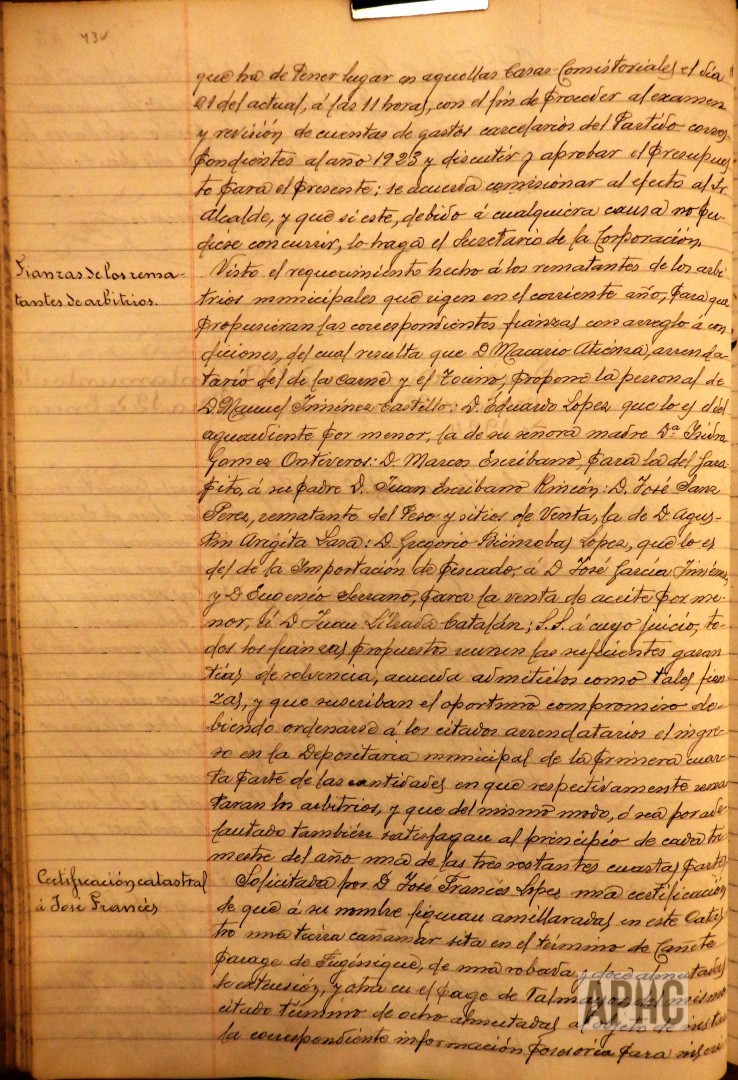 que ha de tener lugar en aquellas Casas Consistoriales el día
21 del actual, á las 11 horas, con el fin de proceder al examen
y revisión de cuentas de gastos carcelarios del Partido corres-
pondientes al año 1923 y discutir y aprobar el presupues-
to para el presente; se acuerda comisionar al efecto al Sr.
Alcalde, y que si este, debido á cualquiera causa no pu-
diese concurrir, lo haga el Secretario de la Corporación.
Fianzas de los rema-
tantes de arbitrios.
Visto el requerimiento hecho á los rematantes de los arbi-
trios municipales que rigen en el corriente año, para que
propusieran las correspondientes fianzas con arreglo á con-
diciones, del cual resulta que D. Macario Atienza, arrenda-
tario del de la carne y el tocino, propone la personal de
D. Manuel Jiménez Castillo: D. Eduardo Lopez que lo es del
aguardiente por menor, la de su señora madre Dª Isidra
Gomez Ontiveros: D. Marcos Escribano, para la del
á su padre D. Juan Escribano Rincón: D. José Sanz
Perez, rematante del Peso y sitios de Venta, la de D. Agus-
tin Lasa: D. Gregorio Lopez, que lo es
del de la Importación de Pescado, á D. José García
y D. Eugenio Serrano, para la venta de aceite por me-
nor, á D. Juan Catalán; S.S. á cuyo juicio, to-
dos los fianzas propuestos reunen las suficientes garan-
tías de solvencia, acuerda admitirlos como tales fian-
zas, y que suscriban el oportuno compromiso de-
biendo ordenarse á los citados arrendatarios el ingre-
so en la Depositaria municipal de la primera cuar-
ta parte de las cantidades en que respectivamente rema-
taran los arbitrios, y que del mismo modo, ó sea por ade-
lantado también satisfagan al principio de cada tri-
mestre del año una de las tres restantes cuartas partes
Certificación catastral
á José Francés
Solicitada por D. José Francés Lopez una certificación
de que á su nombre figuran amillaradas en este Catas-
tro una tierra cañamar sita en el término de Canete
parage de de una robada y doce almutadas
de extensión, y otra en el page de del mismo
citado término de ocho almutadas al objeto de
la correspondiente información posesoria para
APHC